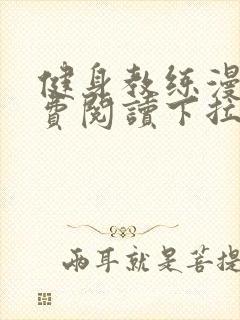 健身教练漫
费阅讀下拉
两耳就是菩提